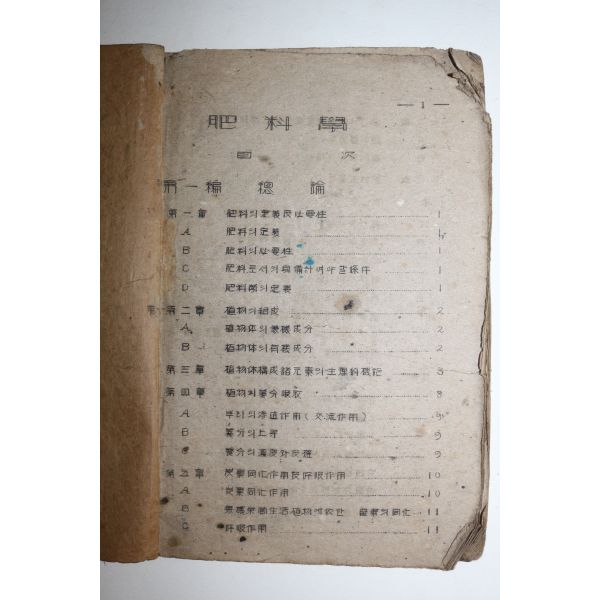 — 1 —
肥料學
目 次
第一編 總 論
第一章 肥料의 定義及必要性 1
A 肥料의 定義 1
B 肥料의 必要性 1
C 肥料로서의 具備하여야 할 條件 1
D 肥料學의 定義 1
第二章 植物의 組成 2
A 植物体의 無機成分 2
B 植物体의 有機成分 2
第三章 植物体構成諸元素의 生理的機能 3
第四章 植物의 養分吸收 8
A 뿌리의 滲透作用(交流作用) 9
B 養分의 上昇 9
C 養分의 濃度 9
第五章 炭素同化作用及呼吸作用 10
A 炭素同化作用 10
B 無機 生活 植物에 의 同化 11
C 呼吸作用 11